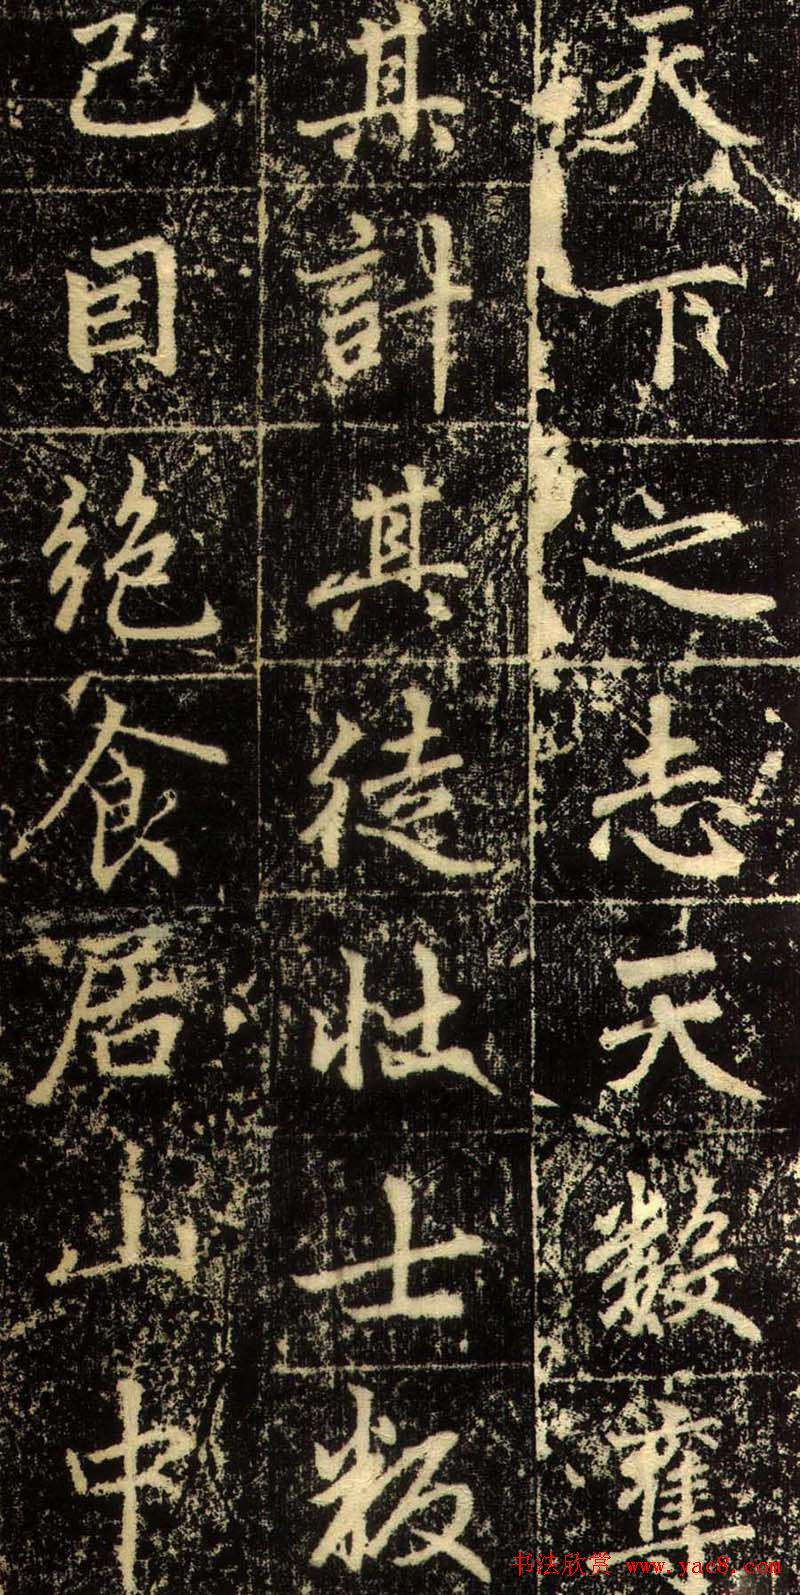 天下之志天數奪
其計其徒壯士叛
己自絕食居山中
书法欣赏 www.yac8.com